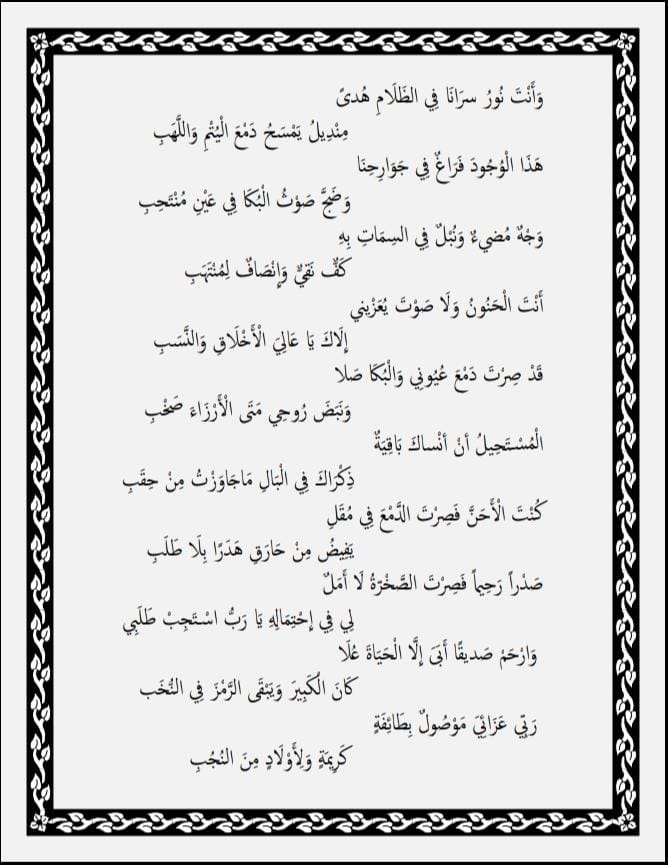 وَأَنْتَ نُورُ سرَانَا فِي الظَلَامِ هُدىً
مِنْدِيلُ يَمْسَحُ دَمْعَ الْيُتْمِ وَاللَّهَبِ
هَذَا الْوُجُودَ فَرَاغٌ فِي جَوَارِحِنَا
وَضَجَّ صَوْتُ الْبُكَا فِي عَيْنِ مُنْتَحِبِ
وَجْهٌ مُضيءٌ وَنُبْلٌ فِي السِمَاتِ بِهِ
كَفٌّ نَقِيٌّ وَإِنْصَافٌ لِمُنْتَهَبِ
أَنْتَ الْحَنُونُ وَلَا صَوْتَ يُعَزْيني
إِلَاكَ يَا عَالِيَ الْأَخْلَاقِ وَالنَّسَبِ
قَدْ صِرْتَ دَمْعَ عُيُونِي وَالْبُكَا صَلا
وَنَبَضَ رُوحِي مَتَى الْأَرْزَاءَ صَخْبِ
الْمُسْتَحِيلُ أنْ أنْساكَ بَاقِيَةٌ
ذِكْرَاكَ فِي الْبَالِ مَاجَاوَزْتُ مِنْ حِقَبِ
كُنْتَ الْأَحَنَّ فَصِرْتَ الدَّمْعَ فِي مُقَلِ
يَفِيضُ مِنْ حَارَقٍ هَدَرًا بِلَا طَلَبِ
صَدْراً رَحِيماً فَصِرْتَ الصَّخْرَةُ لَا أَمَلٌ
لِي فِي إِحْتِمَالِهِ يَا رَبُّ اسْتَجِبْ طَلَبِي
وَارْحَمْ صَديقًا أَبَى إِلَّا الْحَيَاةَ عُلَا
كَانَ الْكَبِيرَ وَيَبْقَى الرَّمْزَ فِي النُّخَب
رَبِّي عَزَائِيَ مَوْصُولٌ بِطَائِفَةٍ
كَرِيمَةٍ وَلِأَوْلَادٍ مِنَ النُجُبِ